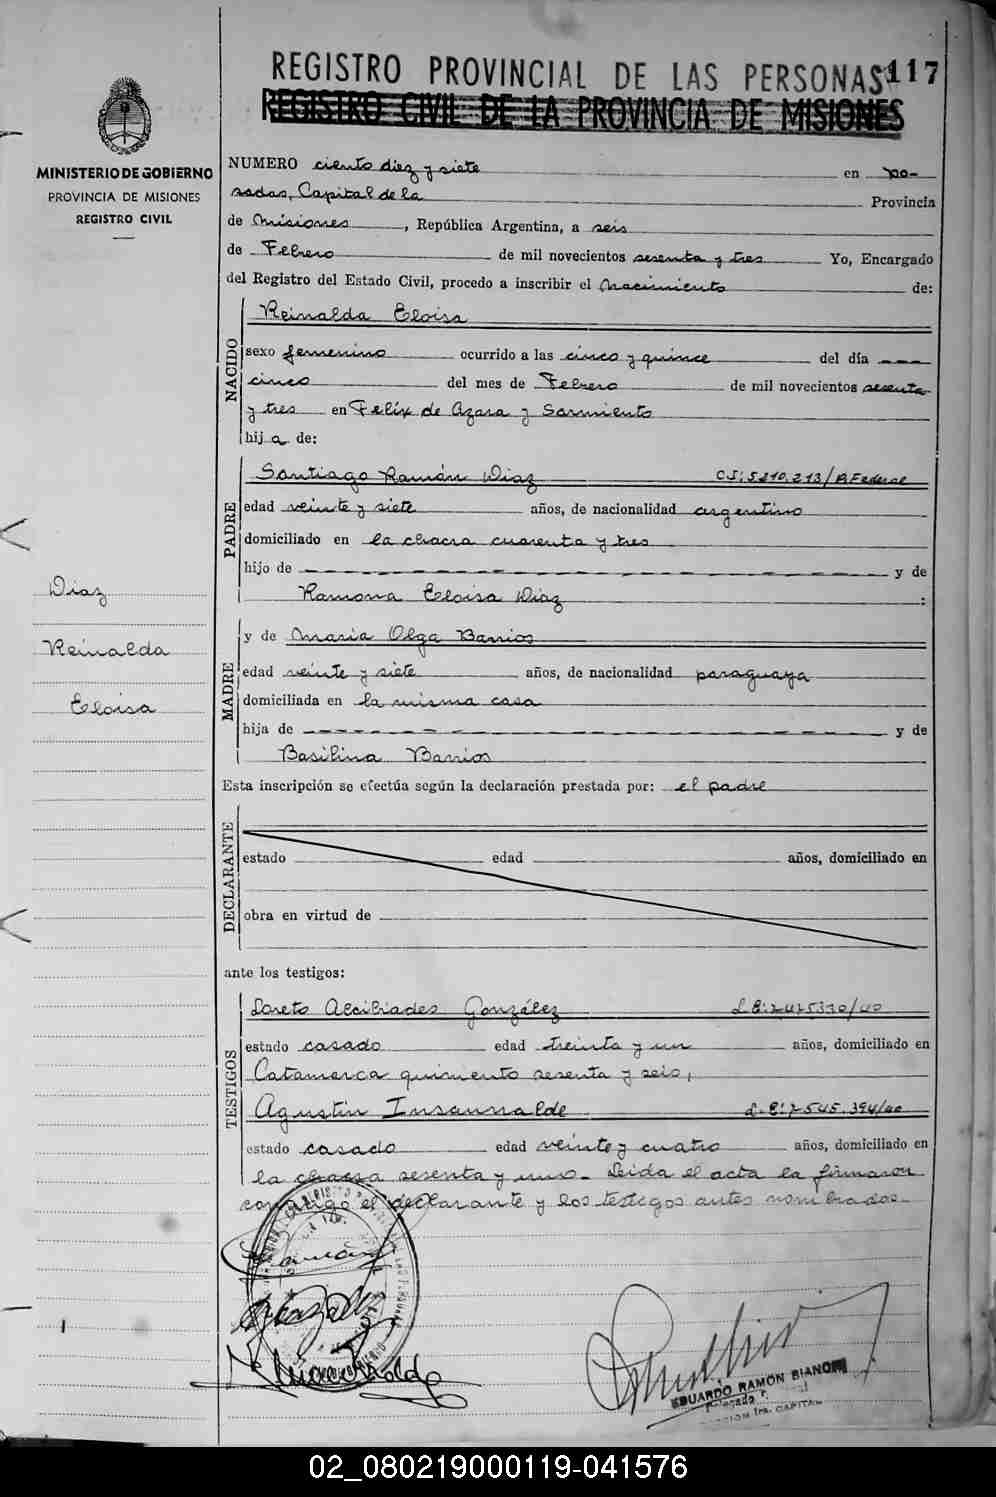 REGISTRO PROVINCIAL DE LAS PERSONAS 117
REGISTRO CIVIL DE LA PROVINCIA DE MISIONES
MINISTERIO DE GOBIERNO
PROVINCIA DE MISIONES
REGISTRO CIVIL
NUMERO ciento diez y siete en Po-
sadas, Capital de la Provincia
de Misiones, República Argentina, a seis
de Febrero de mil novecientos sesenta y tres Yo, Encargado
del Registro del Estado Civil, procedo a inscribir el Nacimiento de:
NACIDO
Reinalda Eloisa
sexo femenino ocurrido a las cinco y quince del día ---
cinco del mes de Febrero de mil novecientos sesenta
y tres en Felix de Azara y Sarmiento
hija de:
PADRE
Santiago Ramón Diaz C.I: 5.210.213/P.Federal
edad veinte y siete años, de nacionalidad argentino
domiciliado en la chacra cuarenta y tres
hijo de ---------- y de
Ramona Eloisa Diaz :
Diaz
Reinalda
Eloisa
MADRE
y de Maria Olga Barrios
edad veinte y siete años, de nacionalidad paraguaya
domiciliada en la misma casa
hija de ---------- y de
Basilina Barrios
Esta inscripción se efectúa según la declaración prestada por: el padre
DECLARANTE
estado edad años, domiciliado en
obra en virtud de
ante los testigos:
TESTIGOS
Loreto Alcibiades González
estado casado edad treinta y un años, domiciliado en
Catamarca quiniento sesenta y seis,
Agustin Insaurralde L.E: 7.545.394/40
estado casado edad veinte y cuatro años, domiciliado en
la chacra sesenta y uno. Leida el acta la firmaron
conmigo el declarante y los testigos antes nombrados.-
EDUARDO RAMON BIANCHI
Delegado
CAPITAL
02_080219000119-041576